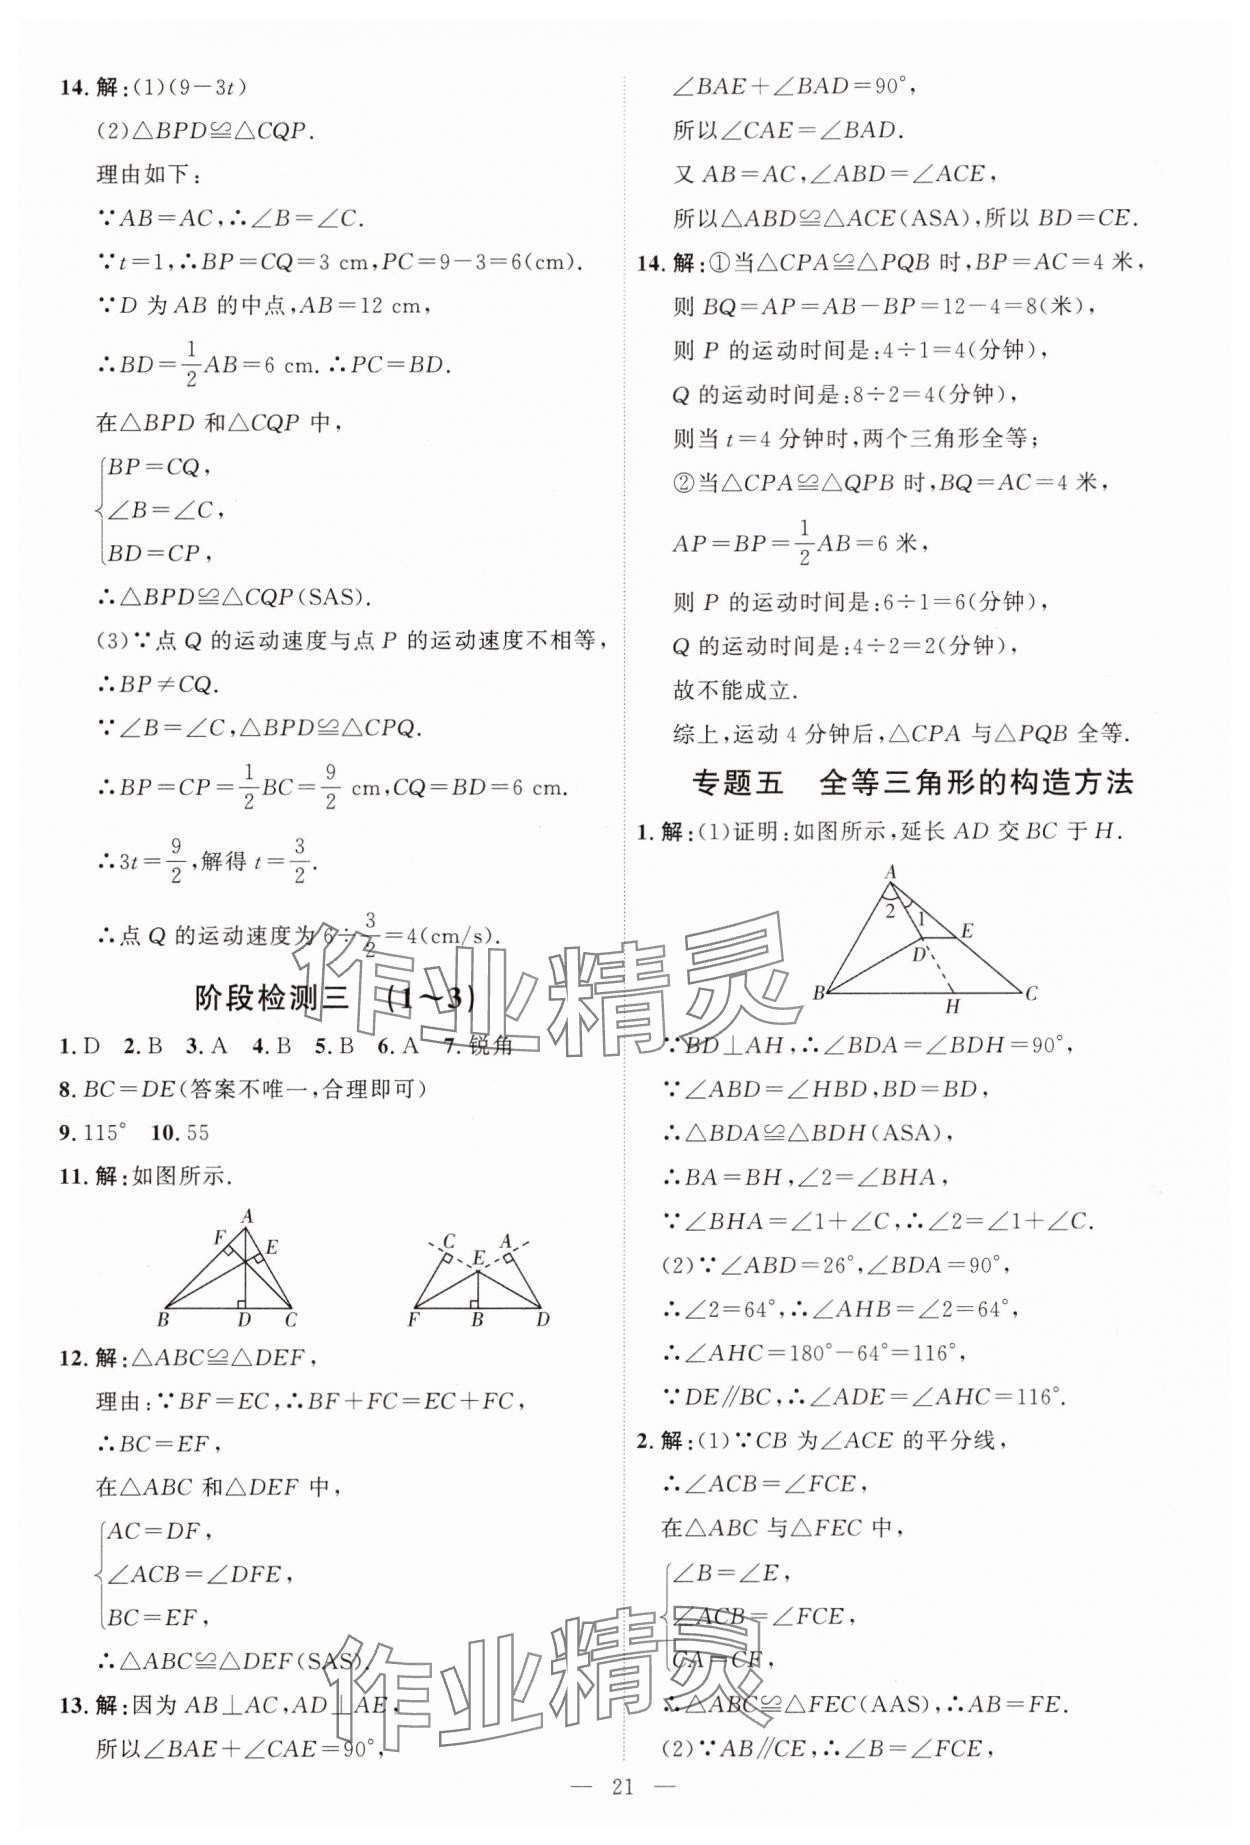 14. 解:(1)(9－3t)
(2)△BPD≌△CQP.
理由如下:
∵AB＝AC,∴∠B＝∠C.
∵t＝1,∴BP＝CQ＝3 cm,PC＝9－3＝6(cm).
∵D 为 AB 的中点,AB＝12 cm,
∴BD＝1/2AB＝6 cm.∴PC＝BD.
在△BPD 和△CQP 中,
BP＝CQ,
∠B＝∠C,
BD＝CP,
∴△BPD≌△CQP(SAS).
(3)∵点 Q 的运动速度与点 P 的运动速度不相等,
∴BP≠CQ.
∵∠B＝∠C,△BPD≌△CPQ.
∴BP＝CP＝1/2BC＝9/2 cm,CQ＝BD＝6 cm.
∴3t＝9/2,解得 t＝3/2.
∴点 Q 的运动速度为 6÷3/2＝4(cm/s).
阶段检测三 (1～3)
1. D 2. B 3. A 4. B 5. B 6. A 7. 锐角
8. BC＝DE(答案不唯一,合理即可)
9. 115° 10. 55
11. 解:如图所示.
A
F
E
B D C
C A
E
F B D
12. 解:△ABC≌△DEF,
理由:∵BF＝EC,∴BF＋FC＝EC＋FC,
∴BC＝EF,
在△ABC 和△DEF 中,
AC＝DF,
∠ACB＝∠DFE,
BC＝EF,
∴△ABC≌△DEF(SAS).
13. 解:因为 AB⊥AC,AD⊥AE,
所以∠BAE＋∠CAE＝90°,
∠BAE＋∠BAD＝90°,
所以∠CAE＝∠BAD.
又 AB＝AC,∠ABD＝∠ACE,
所以△ABD≌△ACE(ASA),所以 BD＝CE.
14. 解:①当△CPA≌△PQB 时,BP＝AC＝4 米,
则 BQ＝AP＝AB－BP＝12－4＝8(米),
则 P 的运动时间是:4÷1＝4(分钟),
Q 的运动时间是:8÷2＝4(分钟),
则当 t＝4 分钟时,两个三角形全等;
②当△CPA≌△QPB 时,BQ＝AC＝4 米,
AP＝BP＝1/2AB＝6 米,
则 P 的运动时间是:6÷1＝6(分钟),
Q 的运动时间是:4÷2＝2(分钟),
故不能成立.
综上,运动 4 分钟后,△CPA 与△PQB 全等.
专题五 全等三角形的构造方法
1. 解:(1)证明:如图所示,延长 AD 交 BC 于 H.
A
2 1
E
D
B H C
∵BD⊥AH,∴∠BDA＝∠BDH＝90°,
∵∠ABD＝∠HBD,BD＝BD,
∴△BDA≌△BDH(ASA),
∴BA＝BH,∠2＝∠BHA,
∵∠BHA＝∠1＋∠C,∴∠2＝∠1＋∠C.
(2)∵∠ABD＝26°,∠BDA＝90°,
∴∠2＝64°,∴∠AHB＝∠2＝64°,
∴∠AHC＝180°－64°＝116°,
∵DE∥BC,∴∠ADE＝∠AHC＝116°.
2. 解:(1)∵CB 为∠ACE 的平分线,
∴∠ACB＝∠FCE,
在△ABC 与△FEC 中,
∠B＝∠E,
∠ACB＝∠FCE,
CA＝CF,
∴△ABC≌△FEC(AAS),∴AB＝FE.
(2)∵AB∥CE,∴∠B＝∠FCE,
— 21 —
作业精灵
作业精灵